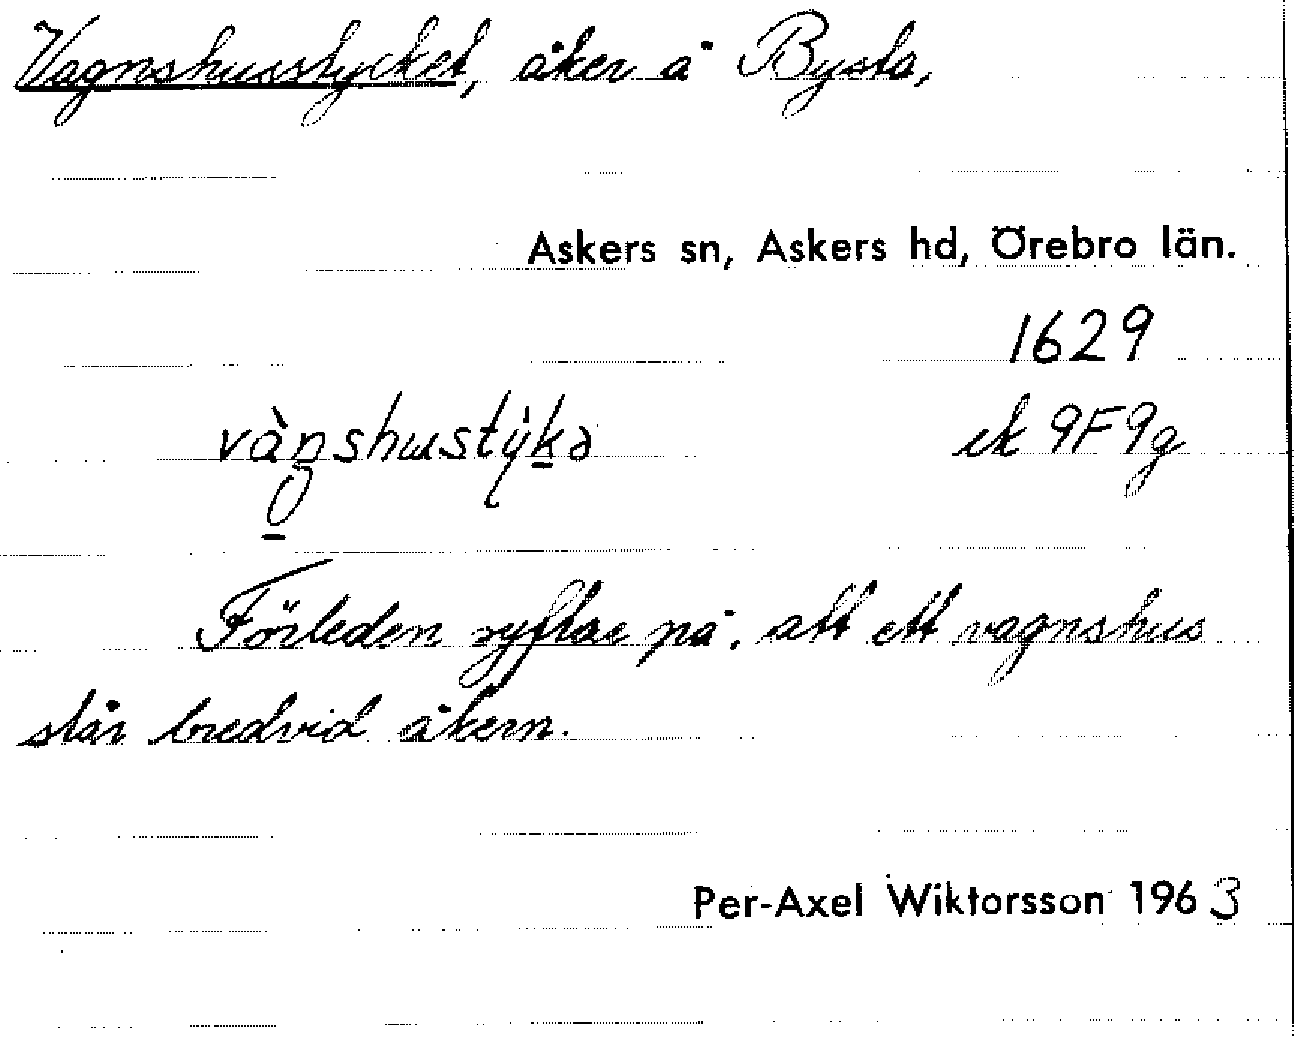 Vagnshusstycket, åker å Bysta,
Askers sn, Askers hd, Örebro län.
1629
vàŋshustýkə
ek 9F9g
Förleden syftar på, att ett vagnshus
står bredvid åkern.
Per-Axel Wiktorsson 1963